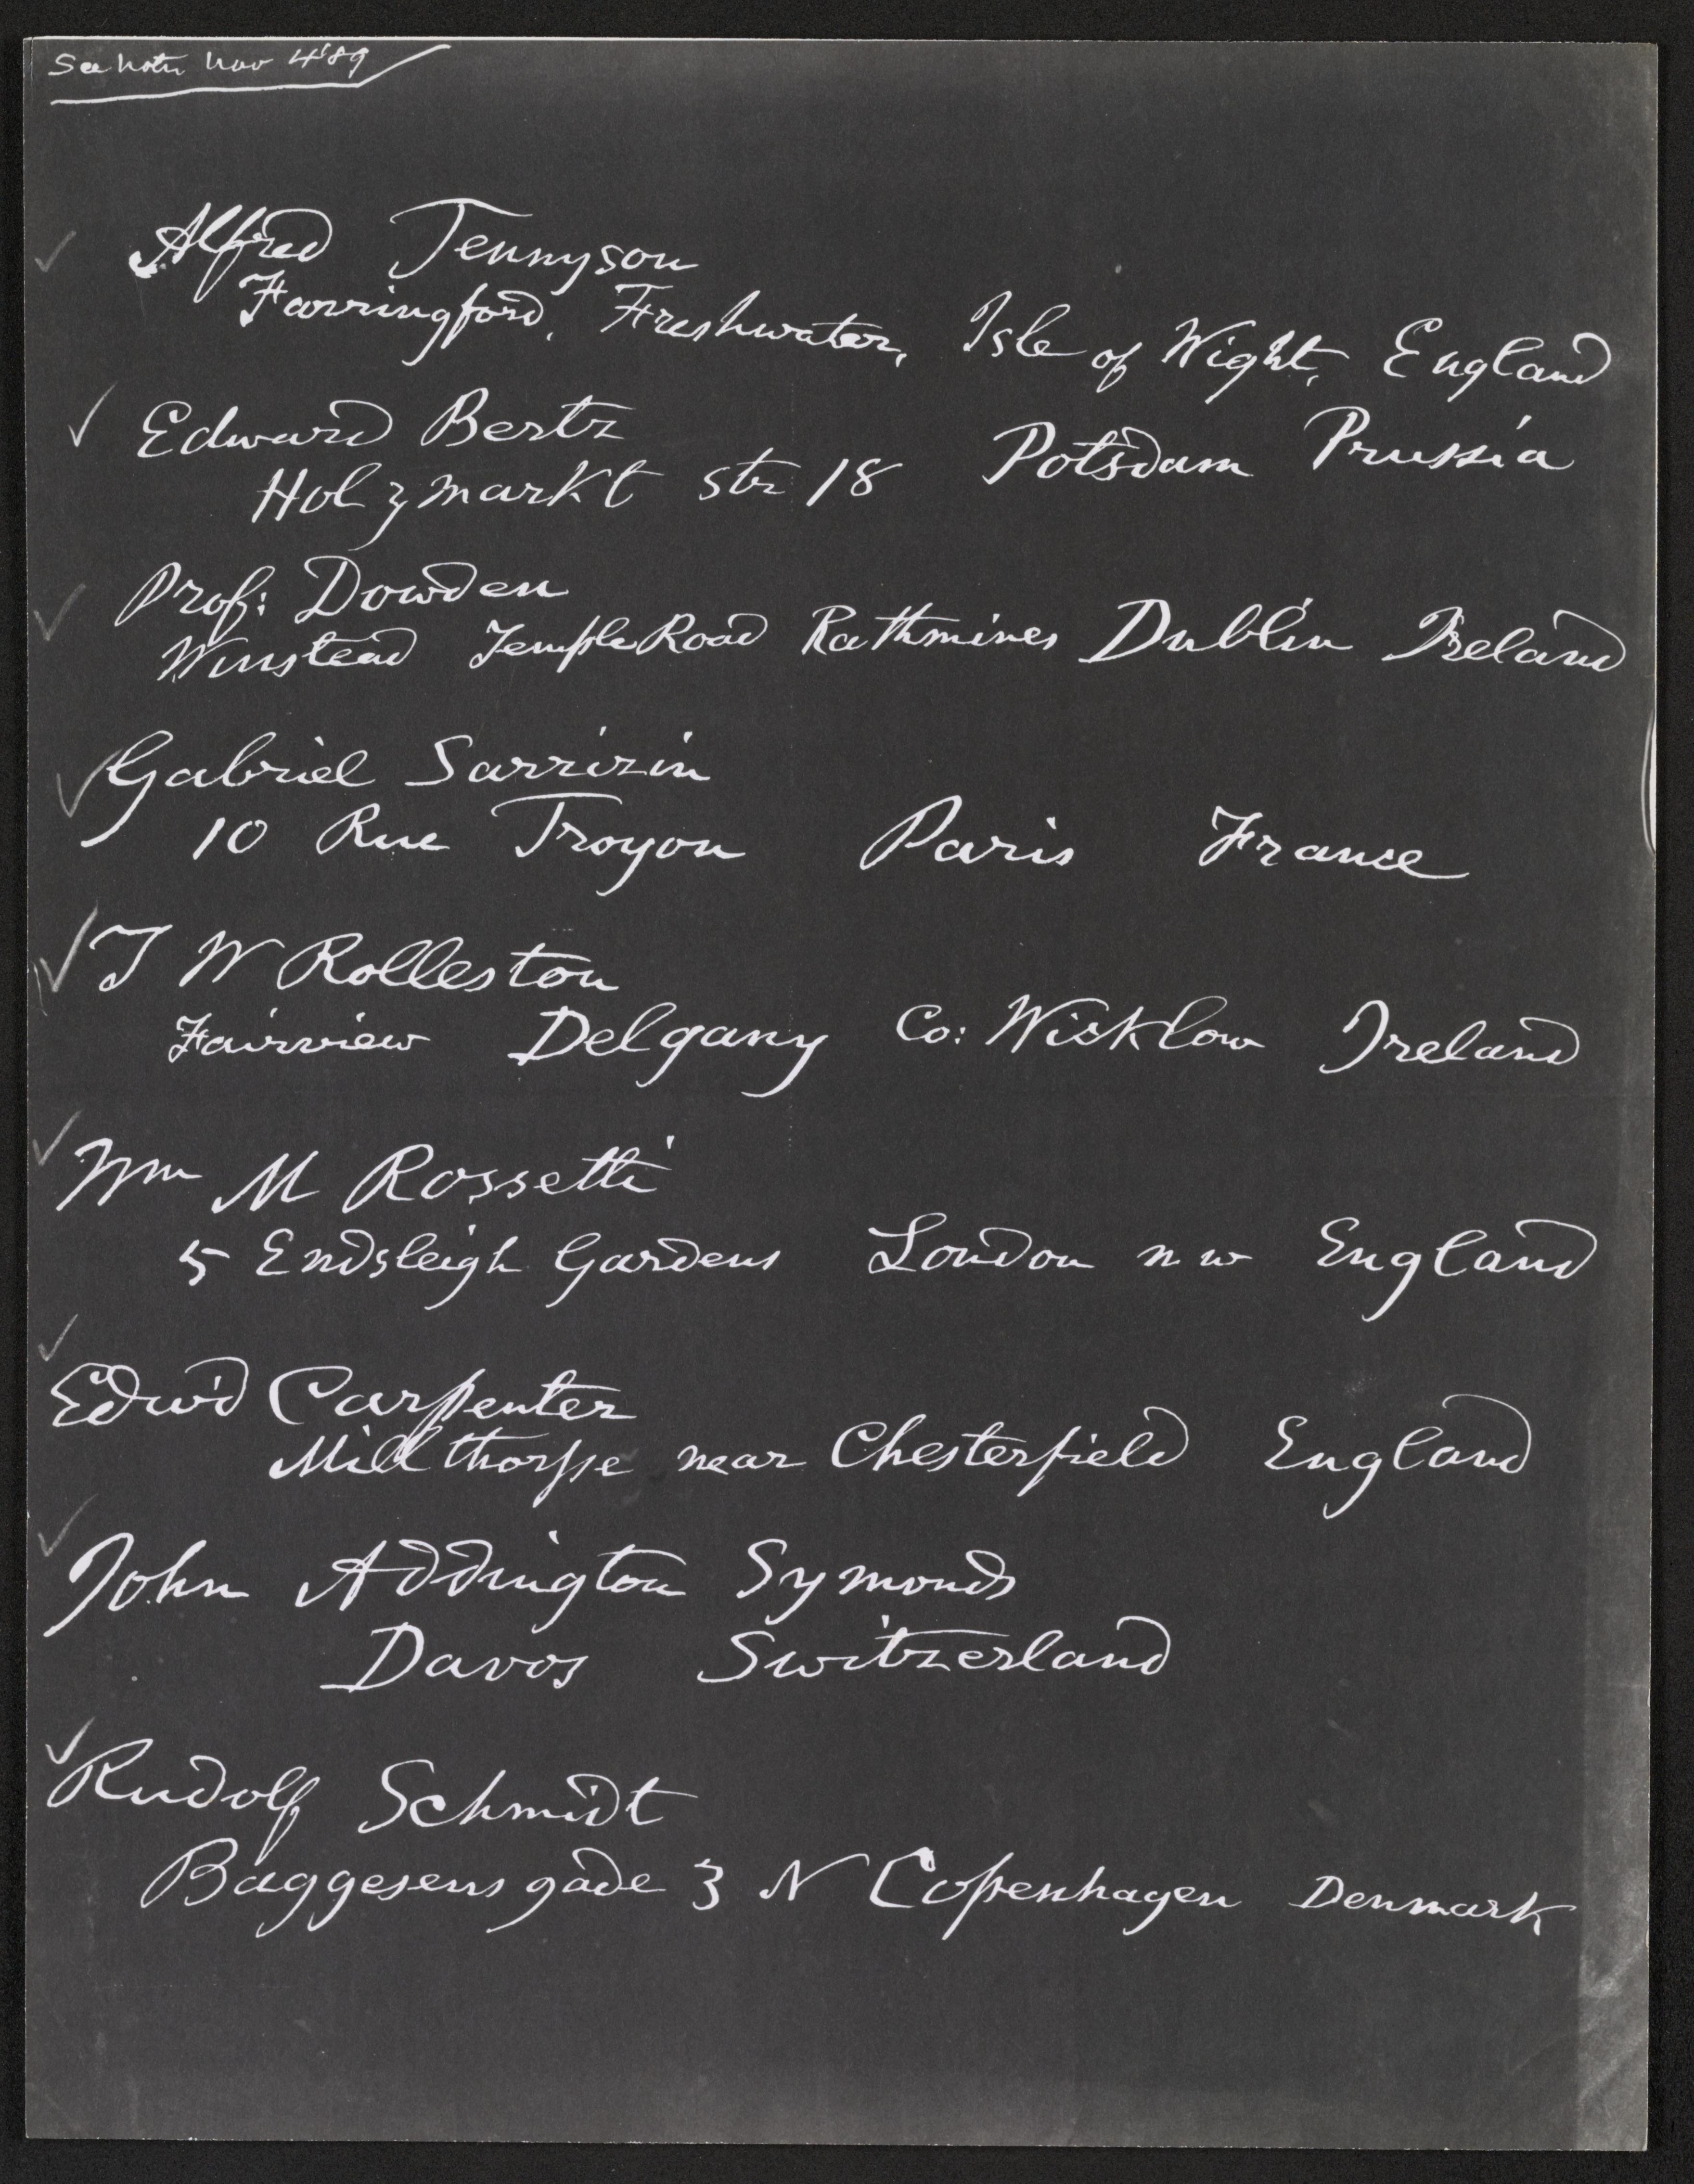 See notes Nov 4 '89
Alfred Tennyson
Farringford, Freshwater, Isle of Wight, England
Edward Bertz
Holzmarkt str 18 Potsdam Prussia
Prof: Dowden
Winstead Temple Road Rathmines Dublin Ireland
Gabriel Sarrizin
10 Rue Troyon Paris France
T W Rolleston
Fairview Delgany Co: Wisklow Ireland
Wm M Rossetti
5 Endsleigh Gardens London n w England
Edw'd Carpenter
Millthorpe near Chesterfield England
John Addington Symonds
Davos Switzerland
Rudolf Schmidt
Baggesens gade 3 N Copenhagen Denmark